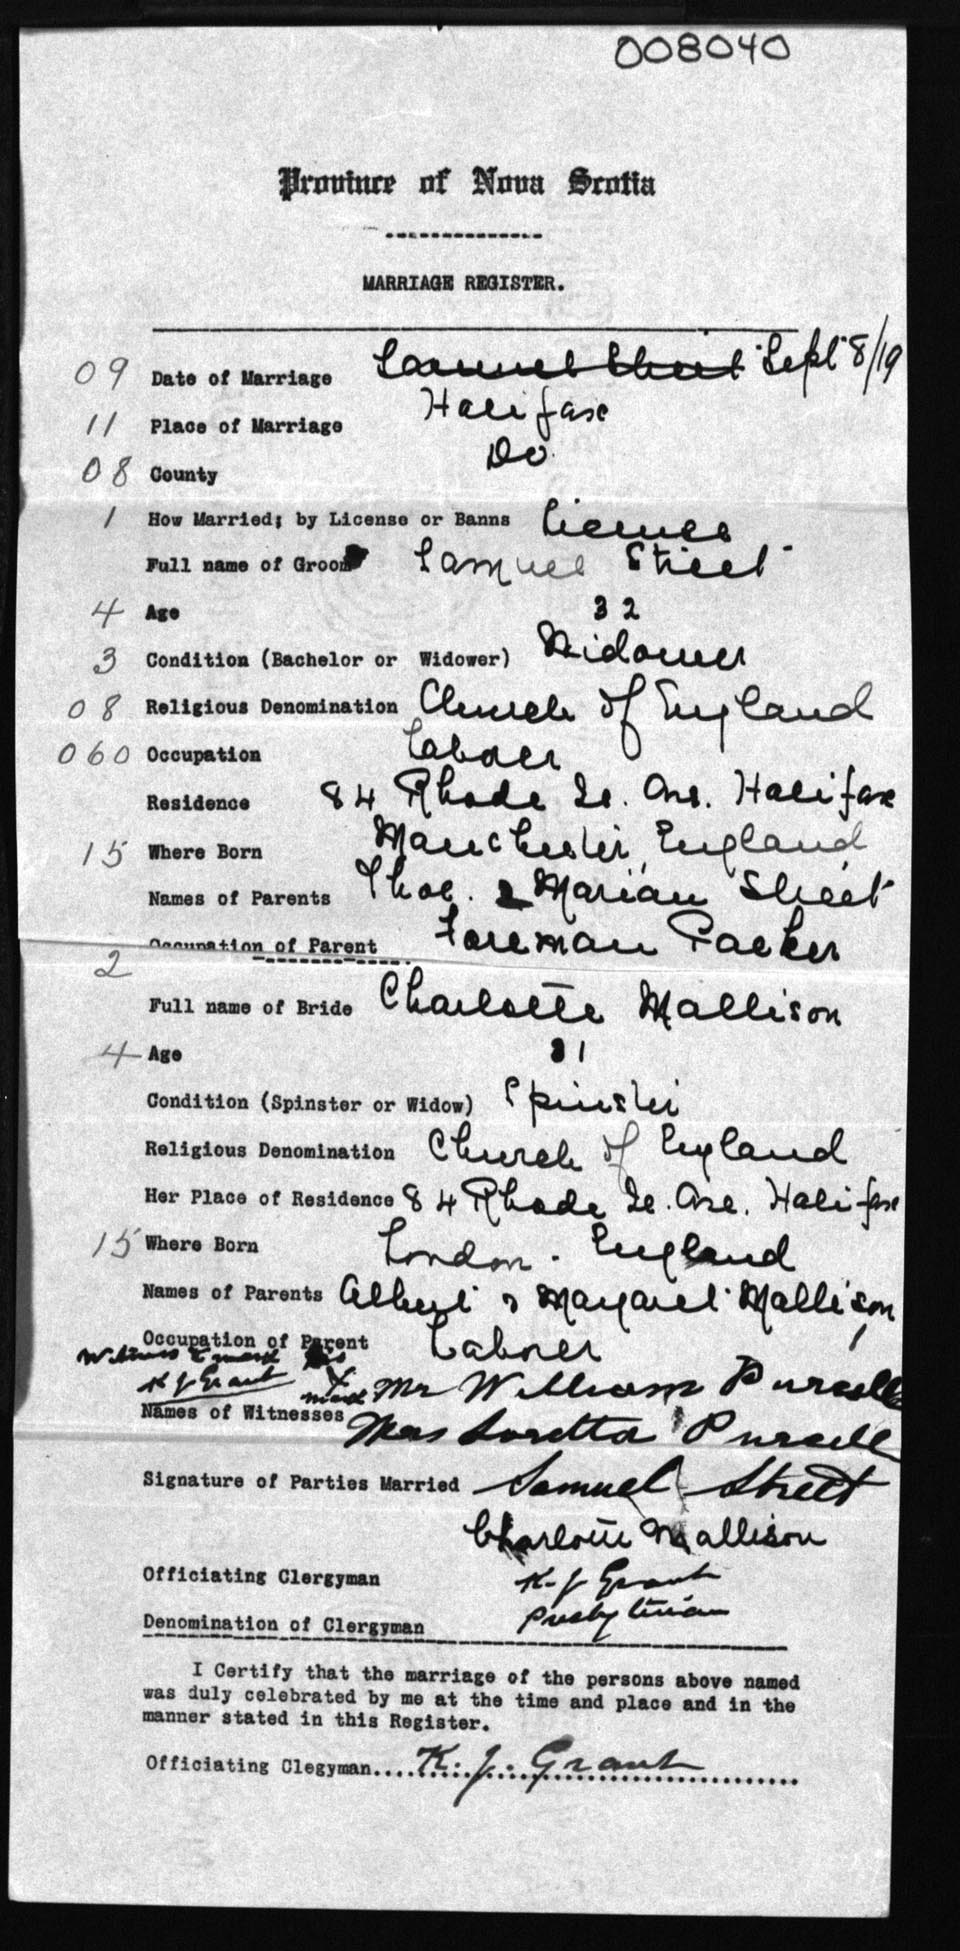 008040
Province of Nova Scotia
MARRIAGE REGISTER.
09 Date of Marriage Samuel Street Sept 8/19
11 Place of Marriage Halifax
08 County Do.
1 How Married; by License or Banns License
Full name of Groom Samuel Street
4 Age 32
3 Condition (Bachelor or Widower) Widower
08 Religious Denomination Church of England
060 Occupation Laborer
Residence 84 Rhode Is. Ave. Halifax
15 Where Born Manchester, England
Names of Parents Thos. & Marian Street
Occupation of Parent Foreman Packer
2
Full name of Bride Charlotte Mallison
4 Age 31
Condition (Spinster or Widow) Spinster
Religious Denomination Church of England
Her Place of Residence 84 Rhode Is. Ave. Halifax
15 Where Born London. England
Names of Parents Albert & Margaret Mallison
Occupation of Parent Laborer
Witness to mark his
K J Grant X mark Mr William Purcell
Names of Witnesses Mrs Loretta Purcell
Signature of Parties Married Samuel Street
Charlotte Mallison
Officiating Clergyman K. J Grant
Denomination of Clergyman Presbyterian
I Certify that the marriage of the persons above named
was duly celebrated by me at the time and place and in the
manner stated in this Register.
Officiating Clegyman....K. J. Grant....